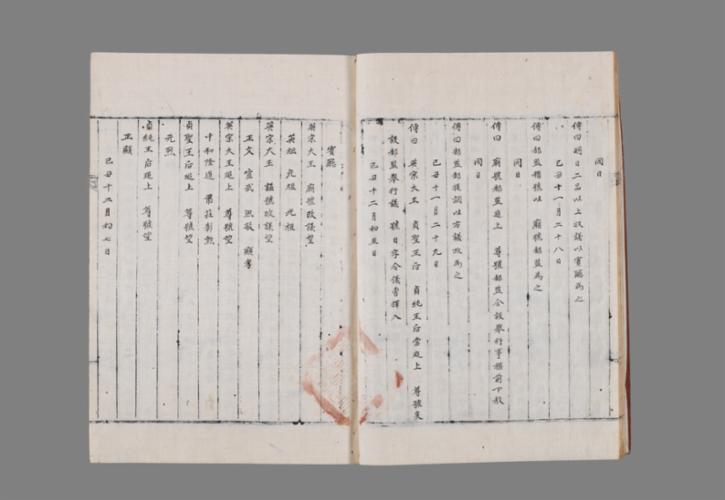 同日
傳曰明日二品以上收議以賓廳為之
己丑十一月二十八日
傳曰都監稱號以 廟號都監為之
同日
廟號都監追上 尊號都監合設擧行事榻前下敎
同日
傳曰都監都提調以右議政為之
己丑十一月二十九日
傳曰 英宗大王 貞聖王后 貞純王后當追上 尊號矣
設都監擧行議 號日字令儀曹擇入
己丑十二月初五日
賓廳
英宗大王 廟號改議望
英祖 光祖
英宗大王 諡號改議望
正文 宣武 熙敬 顯孝
英宗大王追上 尊號望
中和隆道 肅莊彰勳
貞聖王后追上 尊號望
元烈
貞純王后追上 尊號望
正顯
己丑十二月初七日